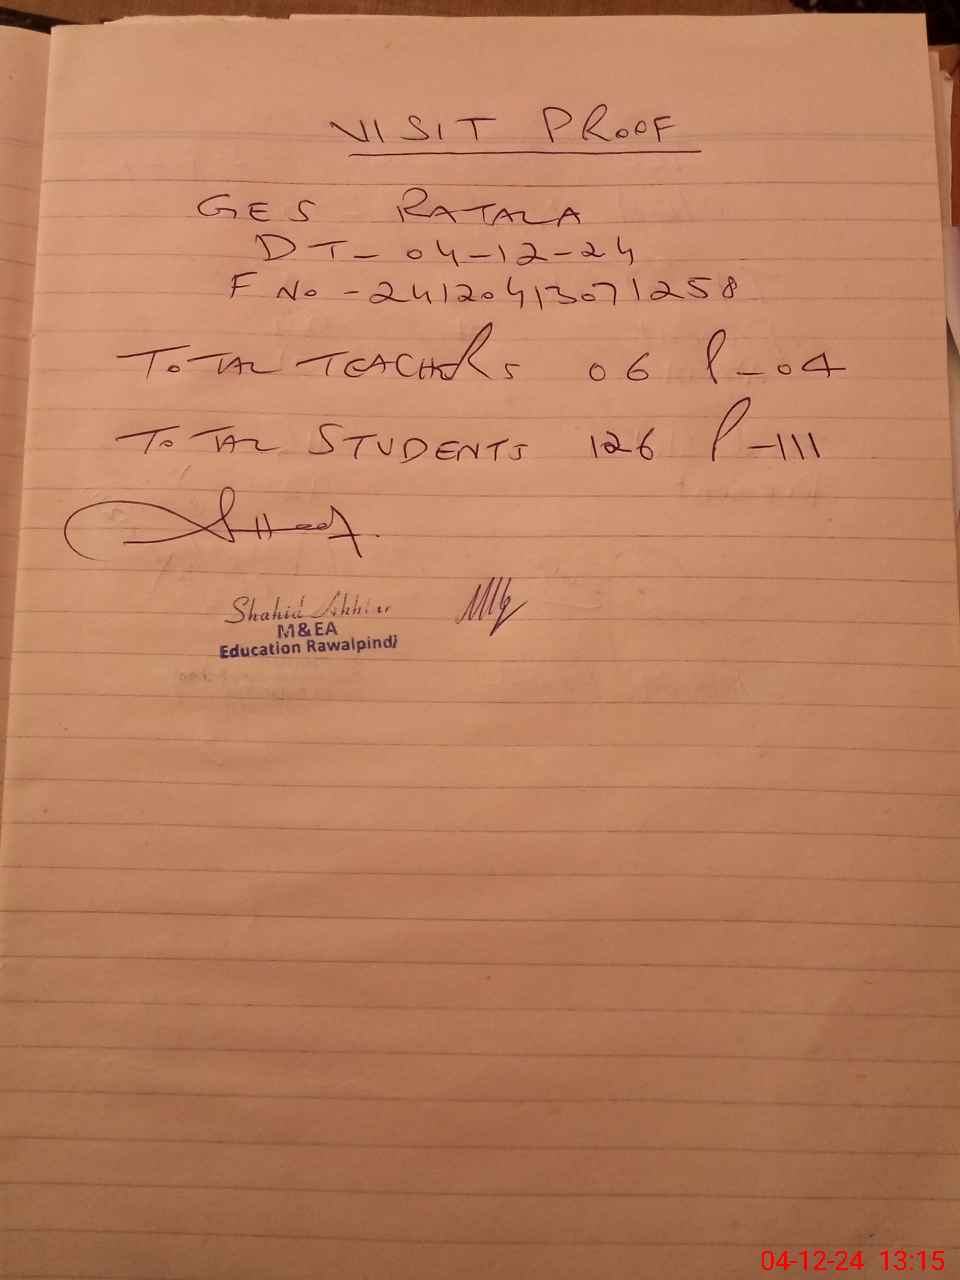 VISIT PROOF
GES RATALA
DT- 04-12-24
F No - 24120413071258
TOTAL TEACHERS 06 P-04
TOTAL STUDENTS 126 P-111
Shahid Akhtar
M&EA
Education Rawalpindi
04-12-24 13:15